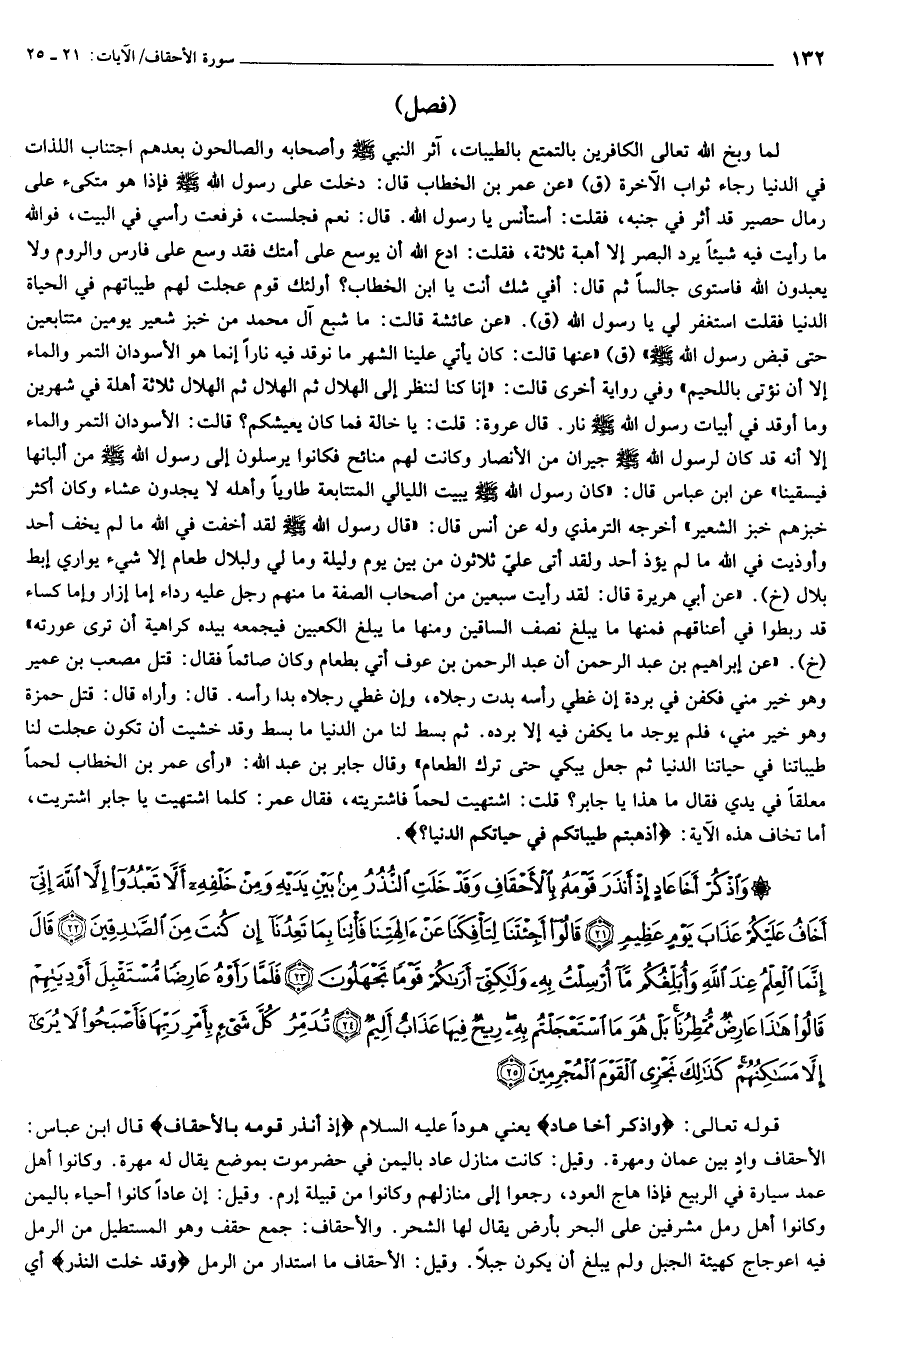 ١٣٢ سورة الأحقاف/ الآيات: ٢١ - ٢٥
(فصل)
لما وبخ الله تعالى الكافرين بالتمتع بالطيبات، آثر النبي ﷺ وأصحابه والصالحون بعدهم اجتناب اللذات
في الدنيا رجاء ثواب الآخرة (ق) «عن عمر بن الخطاب قال: دخلت على رسول الله ﷺ فإذا هو متكىء على
رمال حصير قد أثر في جنبه، فقلت: أستأنس يا رسول الله. قال: نعم فجلست، فرفعت رأسي في البيت، فوالله
ما رأيت فيه شيئاً يرد البصر إلا أهبة ثلاثة، فقلت: ادع الله أن يوسع على أمتك فقد وسع على فارس والروم ولا
يعبدون الله فاستوى جالساً ثم قال: أفي شك أنت يا ابن الخطاب؟ أولئك قوم عجلت لهم طيباتهم في الحياة
الدنيا فقلت استغفر لي يا رسول الله (ق). «عن عائشة قالت: ما شبع آل محمد من خبز شعير يومين متتابعين
حتى قبض رسول الله ﷺ» (ق) «عنها قالت: كان يأتي علينا الشهر ما نوقد فيه ناراً إنما هو الأسودان التمر والماء
إلا أن نؤتى باللحيم» وفي رواية أخرى قالت: «إنا كنا لننظر إلى الهلال ثم الهلال ثم الهلال ثلاثة أهلة في شهرين
وما أوقد في أبيات رسول الله ﷺ نار. قال عروة: قلت: يا خالة فما كان يعيشكم؟ قالت: الأسودان التمر والماء
إلا أنه قد كان لرسول الله ﷺ جيران من الأنصار وكانت لهم منائح فكانوا يرسلون إلى رسول الله ﷺ من ألبانها
فيسقينا» عن ابن عباس قال: «كان رسول الله ﷺ يبيت الليالي المتتابعة طاوياً وأهله لا يجدون عشاء وكان أكثر
خبزهم خبز الشعير» أخرجه الترمذي وله عن أنس قال: «قال رسول الله ﷺ لقد أخفت في الله ما لم يخف أحد
وأوذيت في الله ما لم يؤذ أحد ولقد أتى عليّ ثلاثون من بين يوم وليلة وما لي ولبلال طعام إلا شيء يواري إبط
بلال (خ). «عن أبي هريرة قال: لقد رأيت سبعين من أصحاب الصفة ما منهم رجل عليه رداء إما إزار وإما كساء
قد ربطوا في أعناقهم فمنها ما يبلغ نصف الساقين ومنها ما يبلغ الكعبين فيجمعه بيده كراهية أن ترى عورته»
(خ). «عن إبراهيم بن عبد الرحمن أن عبد الرحمن بن عوف أتي بطعام وكان صائماً فقال: قتل مصعب بن عمير
وهو خير مني فكفن في بردة إن غطي رأسه بدت رجلاه، وإن غطي رجلاه بدا رأسه. قال: وأراه قال: قتل حمزة
وهو خير مني، فلم يوجد ما يكفن فيه إلا برده. ثم بسط لنا من الدنيا ما بسط وقد خشيت أن تكون عجلت لنا
طيباتنا في حياتنا الدنيا ثم جعل يبكي حتى ترك الطعام» وقال جابر بن عبد الله: «رأى عمر بن الخطاب لحماً
معلقاً في يدي فقال ما هذا يا جابر؟ قلت: اشتهيت لحماً فاشتريته، فقال عمر: كلما اشتهيت يا جابر اشتريت،
أما تخاف هذه الآية: ﴿أذهبتم طيباتكم في حياتكم الدنيا؟﴾.
۞ وَاذْكُرْ أَخَا عَادٍ إِذْ أَنذَرَ قَوْمَهُ بِالْأَحْقَافِ وَقَدْ خَلَتِ النُّذُرُ مِنْ بَيْنِ يَدَيْهِ وَمِنْ خَلْفِهِ أَلَّا تَعْبُدُوا إِلَّا اللَّهَ إِنِّي
أَخَافُ عَلَيْكُمْ عَذَابَ يَوْمٍ عَظِيمٍ ۝٢١ قَالُوا أَجِئْتَنَا لِتَأْفِكَنَا عَنْ آلِهَتِنَا فَأْتِنَا بِمَا تَعِدُنَا إِن كُنتَ مِنَ الصَّادِقِينَ ۝٢٢ قَالَ
إِنَّمَا الْعِلْمُ عِندَ اللَّهِ وَأُبَلِّغُكُم مَّا أُرْسِلْتُ بِهِ وَلَٰكِنِّي أَرَاكُمْ قَوْمًا تَجْهَلُونَ ۝٢٣ فَلَمَّا رَأَوْهُ عَارِضًا مُّسْتَقْبِلَ أَوْدِيَتِهِمْ
قَالُوا هَٰذَا عَارِضٌ مُّمْطِرُنَا بَلْ هُوَ مَا اسْتَعْجَلْتُم بِهِ رِيحٌ فِيهَا عَذَابٌ أَلِيمٌ ۝٢٤ تُدَمِّرُ كُلَّ شَيْءٍ بِأَمْرِ رَبِّهَا فَأَصْبَحُوا لَا يُرَىٰ
إِلَّا مَسَاكِنُهُمْ كَذَٰلِكَ نَجْزِي الْقَوْمَ الْمُجْرِمِينَ ۝٢٥
قوله تعالى: ﴿واذكر أخا عاد﴾ يعني هوداً عليه السلام ﴿إذ أنذر قومه بالأحقاف﴾ قال ابن عباس:
الأحقاف وادٍ بين عمان ومهرة. وقيل: كانت منازل عاد باليمن في حضرموت بموضع يقال له مهرة. وكانوا أهل
عمد سيارة في الربيع فإذا هاج العود، رجعوا إلى منازلهم وكانوا من قبيلة إرم. وقيل: إن عاداً كانوا أحياء باليمن
وكانوا أهل رمل مشرفين على البحر بأرض يقال لها الشحر. والأحقاف: جمع حقف وهو المستطيل من الرمل
فيه اعوجاج كهيئة الجبل ولم يبلغ أن يكون جبلاً. وقيل: الأحقاف ما استدار من الرمل ﴿وقد خلت النذر﴾ أي